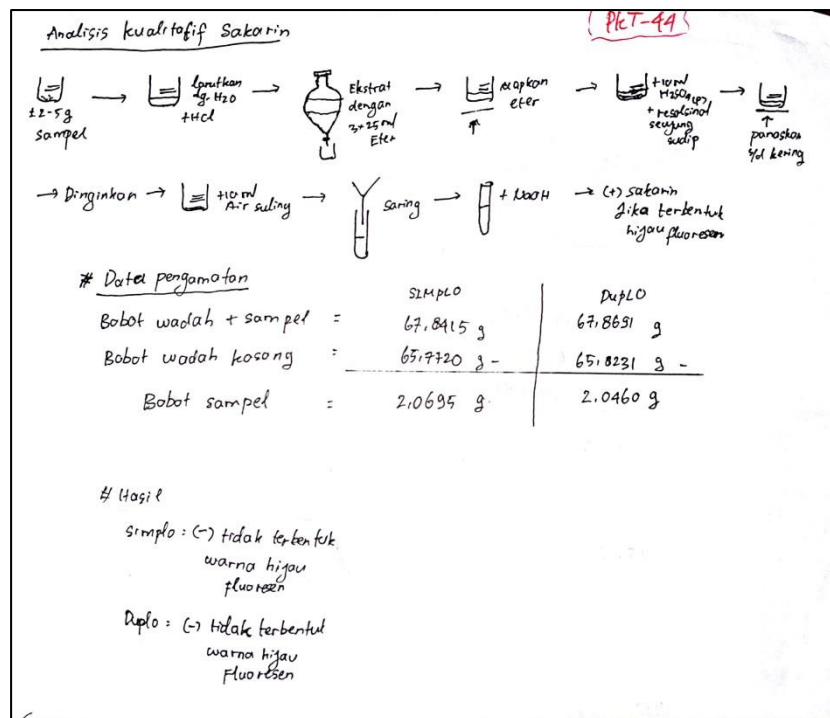 Analisis kualitatif Sakarin
PKT-44
±2-5g
sampel
larutkan
dg. H2O
+HCl
Ekstrat
dengan
3x25ml
Eter
uapkan
eter
+10ml
H2SO4(p)
+ resolsinol
seujung
sudip
panaskan
s/d kering
→ Dinginkan →
+10ml
Air suling
saring
+ NaOH
→ (+) sakarin
Jika terbentuk
hijau fluoresen
# Data pengamatan
SIMPLO DUPLO
Bobot wadah + sampel = 67,8415 g 67,8691 g
Bobot wadah kosong = 65,7720 g - 65,8231 g -
Bobot sampel = 2,0695 g 2.0460 g
# Hasil
simplo : (-) tidak terbentuk
warna hijau
fluoresen
Duplo : (-) tidak terbentuk
warna hijau
Fluoresen